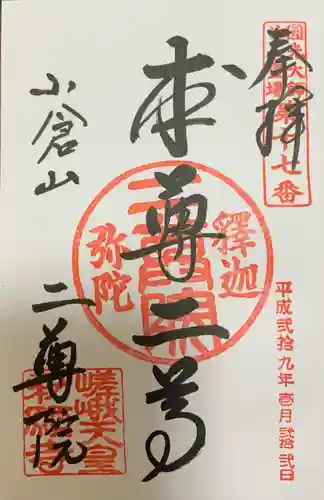 奉拝
第十七番
本尊二尊
釋迦
弥陀
二尊院
平成弐拾九年壱月弐拾弐日
小倉山
二尊院
嵯峨天皇